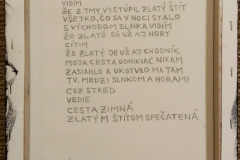 VIDÍM
ŽE Z TMY VYSTÚPIL ZLATÝ ŠTÍT
VŠETKO, ČO SA V NOCI STALO
S VÝCHODOM SLNKA VIDÍM
ŽE ZLATÉ SÚ UŽ AJ HORY
CÍTIM
ŽE ZLATÝ JE UŽ AJ CHODNÍK
MOJA CESTA ODNIKIAĽ NIKAM
ZASIAHLO A UKOTVILO MA TAM
TU, MEDZI SLNKOM A HORAMI
CEZ STRED
VEDIE
CESTA ZIMNÁ
ZLATÝM ŠTÍTOM SPEČATENÁ